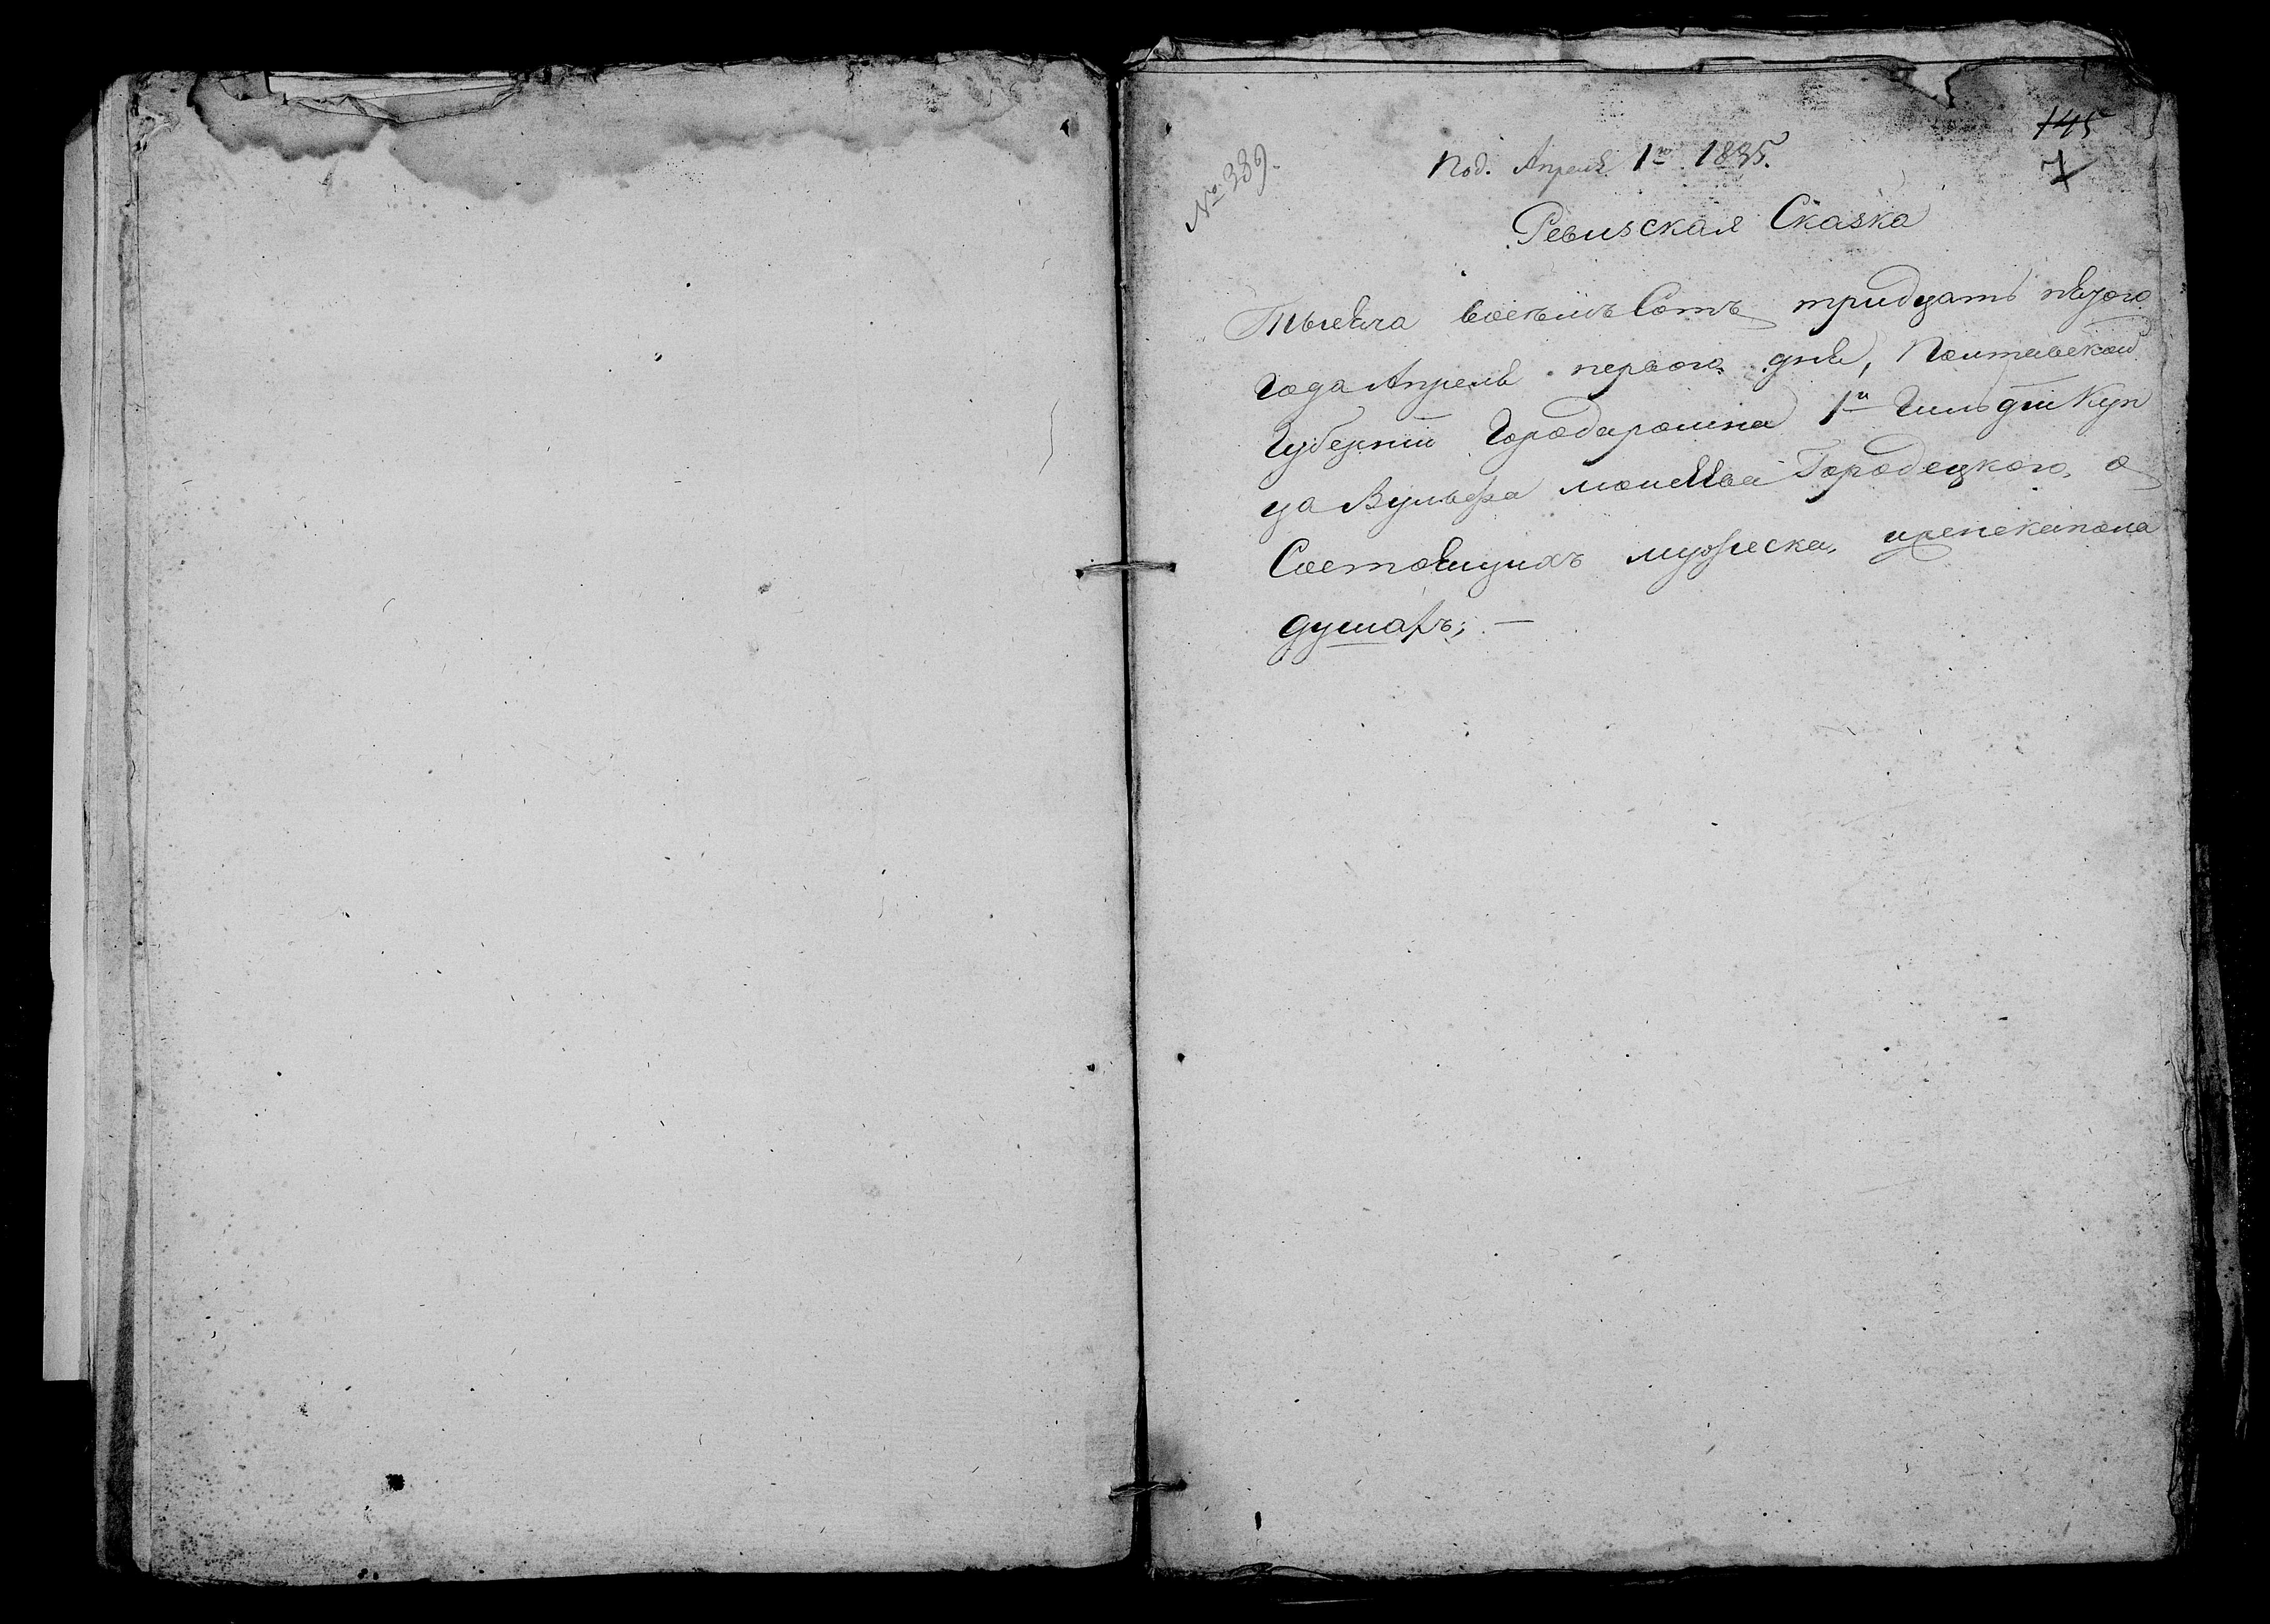 145
7
№ 339.
Под. Апреля 1го 1835.
Ревизская Сказка
Тысяча восемьсотъ тридцать пятого
года Апреля первого дня, Полтавской
Губернии Города 1й Гильдии Куп
ца Вульфа Городецкого, о
Состоящихъ мужеска, пола
душахъ; —